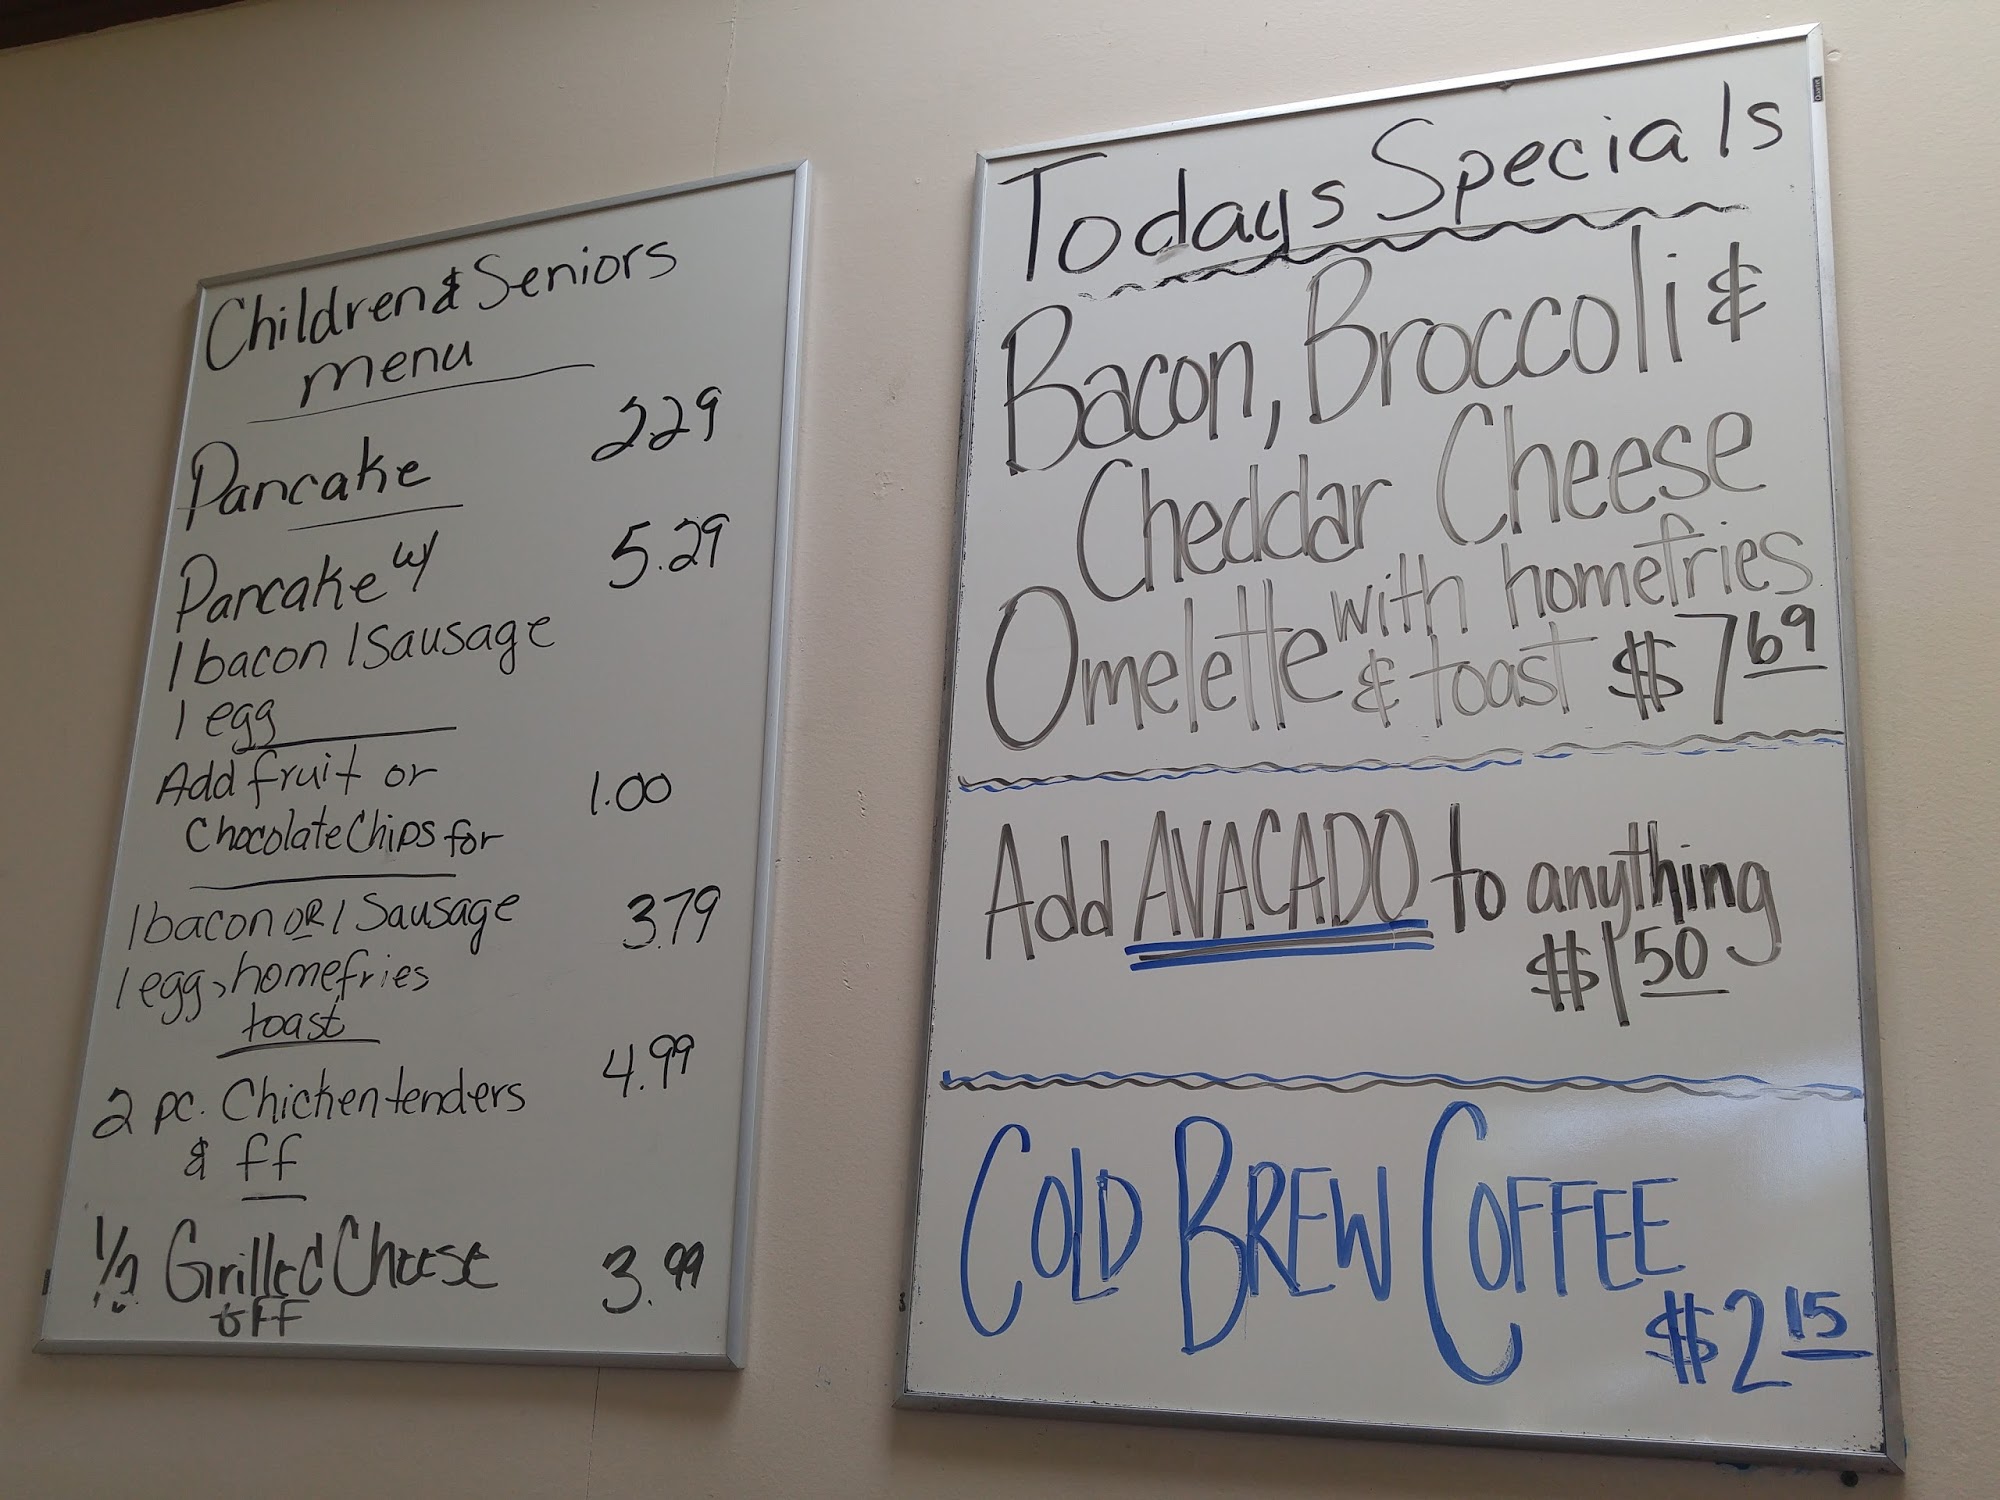 Children & Seniors
menu
Pancake 2.29
Pancake w/ 5.29
1 bacon 1 Sausage
1 egg
Add fruit or 1.00
Chocolate Chips for
1 bacon OR 1 Sausage 3.79
1 egg, homefries
toast
2 pc. Chicken tenders 4.99
& ff
1/2 Grilled Cheese 3.99
& FF
Todays Specials
Bacon, Broccoli &
Cheddar Cheese
Omelette with homefries
& toast $7 69
Add AVACADO to anything
$1 50
COLD BREW COFFEE
$2 15